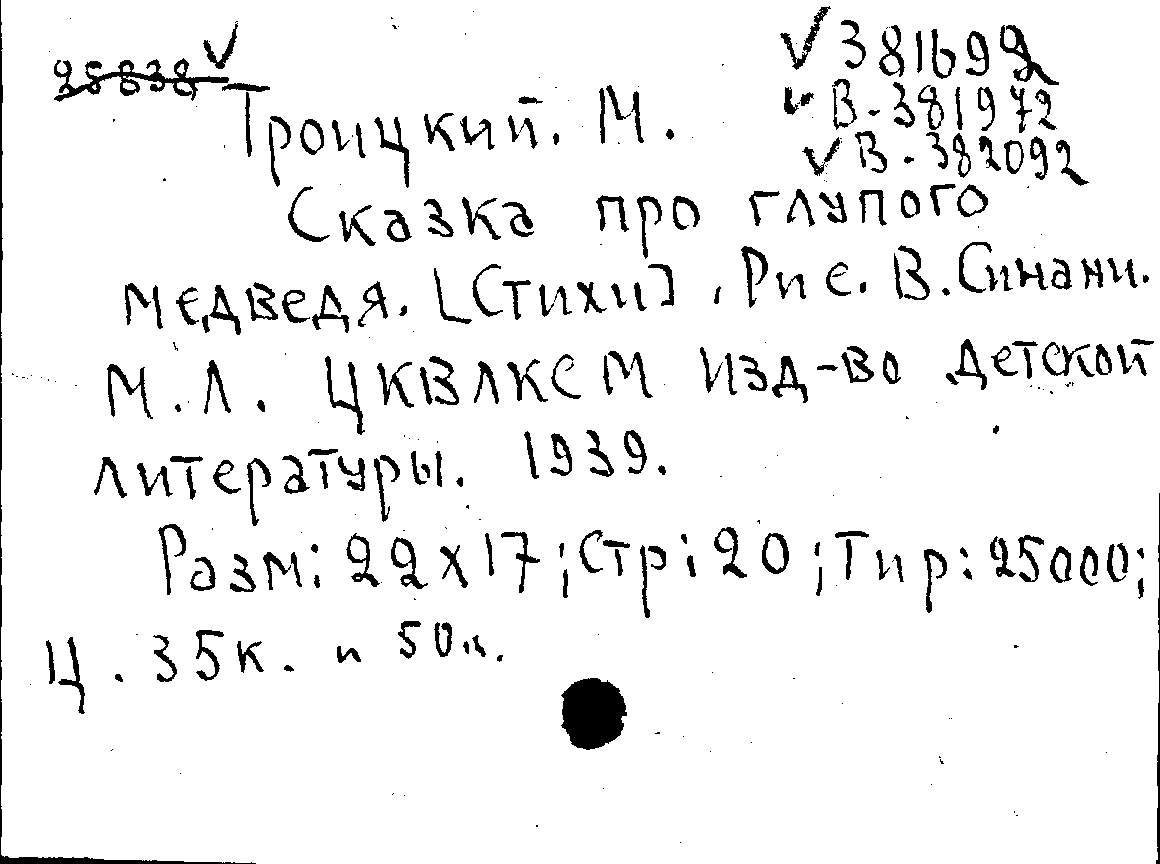 ✓ 381692
25838 ✓
✓ В-381972
Троицкий. М.
✓ В-382092
Сказка про глупого
медведя. [Стихи]. Рис. В. Синани.
М.Л. ЦКВЛКСМ Изд-во детской
литературы. 1939.
Разм: 22х17; Стр: 20; Тир: 25000;
Ц. 35к. и 50к.